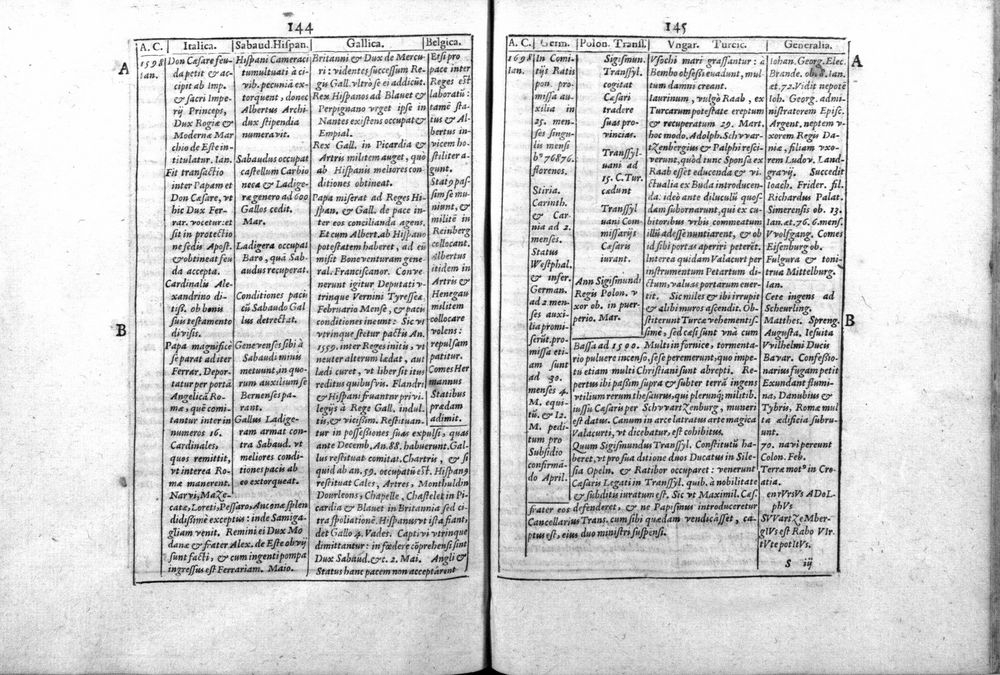 144
A. C.
Italica.
Sabaud. Hispan.
Gallica.
Belgica.
A
B
1598
Ian.
Don Cæsare feu-
da petit & ac-
cipit ab Imp.
& sacri Impe-
rij Princeps,
Dux Rogiæ &
Moderna Mar
chio de Este in-
titulatur. Ian.
Fit transactio
inter Papam et
Don Cæsare, vt
hic Dux Fer-
rar. vocetur et
sit in protectio
ne sedis Apost.
& obtineat feu
da accepta.
Cardinalis Ale-
xandrino di-
tiss. ob bonis
suis testamento
divisis.
Papa magnificè
se parat ad iter
Ferrar. Depor-
tatur per portā
Angelicā Ro-
mæ, què comi-
tantur inter in
numeros 16.
Cardinales,
quos remittit,
vt interea Ro-
mæ manerent.
Narvi, MaZe-
cate, Loreti, Pessaro, Anconæ splen
didissimè exceptus: inde Samiga-
gliam venit. Remini ei Dux Mo
danæ & frater Alex. de Este obvij
sunt facti, & cum ingenti pompa
ingressus est Ferrariam. Maio.
Hispani Cameraci
tumultuati à ci-
vib. pecunia ex-
torquent, donec
Albertus Archi
dux stipendia
numeravit.
Sabaudus occupat
castellum Carbio
neca & Ladige-
ræ genero ad 600
Gallos cedit.
Mar.
Ladigera occupat
Baro, quā Sab-
audus recuperat.
Conditiones pacis
cū Sabaudo Gal
lus detrectat.
Genevenses sibi à
Sabaudi minis
metuunt, in quo-
rum auxilium se
Bernenses pa-
rant.
Gallus Ladige-
ram armat con-
tra Sabaud. vt
meliores condi-
tiones pacis ab
eo extorqueat.
Britanni & Dux de Mercu-
ri: videntes successum Re-
gis Gall. vltrò se ei addicūt.
Rex Hispanos ad Blauet &
Perpignano vrget ipse in
Nantes existens occupat &
Empial.
Rex Gall. in Picardia &
Artris militem auget, quò
ab Hispanis meliores con-
ditiones obtineat.
Papa miserat ad Reges Hi-
span. & Gall. de pace in-
ter eos conciliandâ agens.
Et cum Albert. ab Hispano
potestatem haberet, ad eū
misit Boneventuram gene-
ral. Franciscanor. Conve
nerunt igitur Deputati v-
trinque Vernini Tyresseæ
Februario Mense, & pacis
conditiones ineunt: Sic vt
vtrinque stetur pactis An.
1559. inter Reges initis, vt
neuter alterum lædat, aut
lædi curet, vt liber sit itus
reditus quibusvis. Flandri
& Hispani fruantur privi-
legijs à Rege Gall. indul-
tis, & vicissim. Restituan-
tur in possessiones suas expulsi, quas
ante Decemb. An. 88. habuerunt. Gal-
lus restituat comitat. Chartris, & si
quid ab an. 59. occupatū est. Hispanꝰ
restituat Cales, Artres, Monthuldin
Dourleons, Chapelle, Chastelet in Pi-
cardia & Blauet in Britannia sed ci-
tra spoliationē. Hispanus vt ista fiant,
det Gallo 4. Vades. Captivi vtrinque
dimittantur: in fœdere cōprehensi sint
Dux Sabaud. &c. 2. Mai. Angli &
Status hanc pacem non acceptârent
Etsi pro
pace inter
Reges est
laboratū:
tamē sta-
tus & Al-
bertus in-
vicem ho-
stiliter a-
gunt.
Statꝰ pas-
sim se mu-
niunt, &
militē in
Reinberg
collocant.
Albertus
itidem in
Artris &
Henegau
militem
collocare
volens:
repulsam
patitur.
Comes Her
mannus
Statibus
prædam
adimit.
145
A. C.
Germ.
Polon. Transl.
Vngar. Turcic.
Generalia.
A
B
1698
Ian.
In Comi-
tijs Ratis
pon. pro-
missa au-
xilia in
25. men-
ses singu-
lis mensi
bꝰ 76876.
florenos.
Stiria.
Carinth.
& Car-
nia ad 2.
menses.
Status
Westphal.
& infer.
German.
ad 2 men-
ses auxi-
lia promi-
serūt. pro-
missa eti-
am sunt
ad 30.
menses 4.
M. equi-
tū, & 12.
M. pedi-
tum pro
Subsidio
confirma-
do April.
Sigismun.
Transyl.
cogitat
Cæsari
tradere
suas pro-
vincias.
Transsyl-
uani ad
15. C. Tur.
cædunt
Transsyl
uani Com-
missarijs
Cæsaris
iurant.
Ann Sigismundi
Regis Polon. v
xor ob. in puer-
perio. Mar.
Vsochi mari grassantur: à
Bembo obsessi evadunt, mul
tum damni creant.
Iaurinum, vulgò Raab, ex
Turcarum potestate ereptum
& recuperatum 29. Mart.
hoc modo. Adolph. Schvvar-
tZenbergius & Palphi resci-
verunt, quòd tunc Sponsa ex
Raab esset educenda & vi-
ctualia ex Buda introducen-
da. ideò ante diluculū quos-
dam subornarunt, qui ex cu-
bitoribus vrbis commeatum
illū adesse nuntiarent, & ob
id sibi portas aperiri peterēt.
Interea quidam Valacurt per
instrumentum Petartum di-
ctum, valuas portarum ener-
tit. Sic miles & ibi irrupit
& alibi muros ascendit. Ob-
stiterunt Turcæ vehementis-
simè, sed cæsi sunt vnà cum
Bassa ad 1500. Multi in fornice, tormenta-
rio puluere incenso, se se peremerunt, quo impe-
tu etiam multi Christiani sunt abrepti. Re-
pertus ibi passim supra & subter terrâ ingens
vtilium rerum thesaurus, qui plerunq; militib.
iussu Cæsaris per SchvvartZenburg, muneri
est datus. Canum in arce latratus arte magica
Valacurti, vt dicebatur, est cohibitus.
Quum Sigismundus Transsyl. Constitutū ha-
beret, vt pro sua ditione duos Ducatus in Sile-
sia Opeln. & Ratibor occuparet: venerunt
Cæsaris Legati in Transsyl. quib. à nobilitate
& subditis iuratum est. Sic vt Maximil. Cæs.
frater eos defenderet, & ne Papismus introduceretur
Cancellarius Trans. cum sibi quædam vendicasset, ca-
ptus est, eius duo ministri suspensi.
Iohan. Georg. Elec.
Brande. ob. 8. Ian.
æt. 72. Vidit nepotē
Ioh. Georg. admi-
nistratorem Episc.
Argent. neptem v-
xorem Regis Da-
niæ, filiam vxo-
rem Ludov. Land-
gravij. Succedit
Ioach. Frider. fil.
Richardus Palat.
Simerensis ob. 13.
Ian. æt. 76. 6. mens.
Vvolfgang. Comes
Eisenburg ob.
Fulgura & toni-
trua Mittelburg.
Ian.
Cete ingens ad
Scheurling.
Matthes. Spreng.
Augusta, Iesuita
Vvilhelmi Ducis
Bavar. Confessio-
narius fugam petit
Exundant flumi-
na, Danubius &
Tybris, Romæ mul
ta ædificia subru-
unt.
70. navi pereunt
Colon. Feb.
Terræ motꝰ in Cro-
atia.
en rVrsVs ADoL-
phVs
SVVartZe Mber-
gIVs est Rabo VIr.
tVte potItVs.
S iij